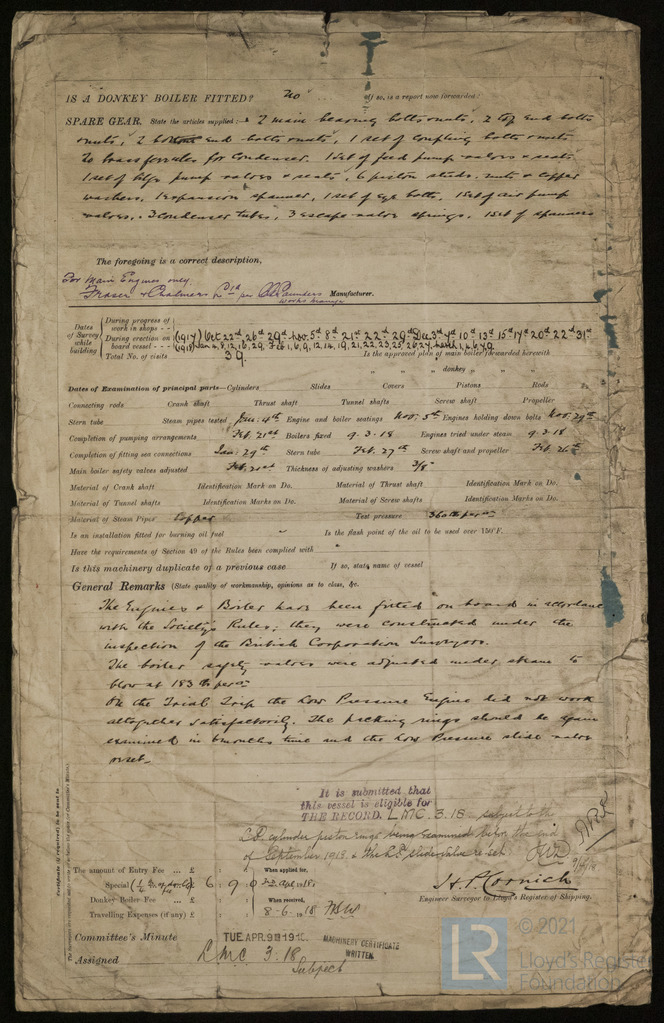 IS A DONKEY BOILER FITTED? No If so, is a report now forwarded?
SPARE GEAR. State the articles supplied:- 2 main bearing bolts & nuts, 2 top end bolts
& nuts, 2 bottom end bolts & nuts, 1 set of coupling bolts & nuts
20 brass ferrules for condenser. 1 set of feed pump valves & seats
1 set of bilge pump valves & seats, 6 piston studs, nuts & copper
washers, 1 expansion spanner, 1 set of eye bolts, 1 set of air pump
valves, 3 condenser tubes, 3 escape valve springs, 1 set of spanners
The foregoing is a correct description,
For Main Engines only.
Fraser & Chalmers Ltd per Saunders Manufacturer.
Works Manager
Dates of Survey while building
During progress of work in shops - -
During erection on board vessel - - -
Total No. of visits 39.
(1917) Oct 22nd, 26th 29th Nov. 5th 8th 21st 22nd 29th Dec. 3rd 10th 13th 15th 17th 20th 22nd 31st
(1918) Jan 4, 8, 12, 16, 29, Feb 1, 6, 9, 12, 14, 19, 21, 22, 23, 25, 26, 27, March 1, 4, 6, 7, 9
Is the approved plan of main boiler forwarded herewith
" " " donkey " " "
Dates of Examination of principal parts—Cylinders Slides Covers Pistons Rods
Connecting rods Crank shaft Thrust shaft Tunnel shafts Screw shaft Propeller
Stern tube Steam pipes tested Jan: 4th Engine and boiler seatings Nov: 5th Engines holding down bolts Nov: 29th
Completion of pumping arrangements Feb. 21st Boilers fixed 9.3.18 Engines tried under steam 9.3.18
Completion of fitting sea connections Jan: 29th Stern tube Feb. 27th Screw shaft and propeller Feb. 26th
Main boiler safety valves adjusted Feb. 21st Thickness of adjusting washers 3/8"
Material of Crank shaft Identification Mark on Do. Material of Thrust shaft Identification Mark on Do.
Material of Tunnel shafts Identification Marks on Do. Material of Screw shafts Identification Marks on Do.
Material of Steam Pipes Copper Test pressure 360 lbs per □"
Is an installation fitted for burning oil fuel Is the flash point of the oil to be used over 150°F.
Have the requirements of Section 49 of the Rules been complied with
Is this machinery duplicate of a previous case If so, state name of vessel
General Remarks (State quality of workmanship, opinions as to class, &c.
The Engines & Boiler have been fitted on board in accordance
with the Society's Rules, they were constructed under the
inspection of the British Corporation Surveyors.
The boiler safety valves were adjusted under steam to
blow at 183 lbs per □"
On the Trial Trip the Low Pressure Engine did not work
altogether satisfactorily. The packing rings should be again
examined in 6 months time and the Low Pressure slide valve
reset.
It is submitted that
this vessel is eligible for
THE RECORD. LMC. 3.18. subject to the
L.P. cylinder piston rings being examined before the end
of September 1918 & the L.P. slide valve re-set
Certificate (if required) to be sent to
The amount of Entry Fee ... £ : : When applied for,
Special £ 6 : 9 : 0 22 Apl. 1918
Donkey Boiler Fee ... £ : : When received,
Travelling Expenses (if any) £ : : 8-6-1918
Engineer Surveyor to Lloyd's Register of Shipping.
Committee's Minute TUE. APR. 9 1918
MACHINERY CERTIFICATE
WRITTEN
Assigned LMC 3.18
Subject
LR
© 2021
Lloyd's Register
Foundation